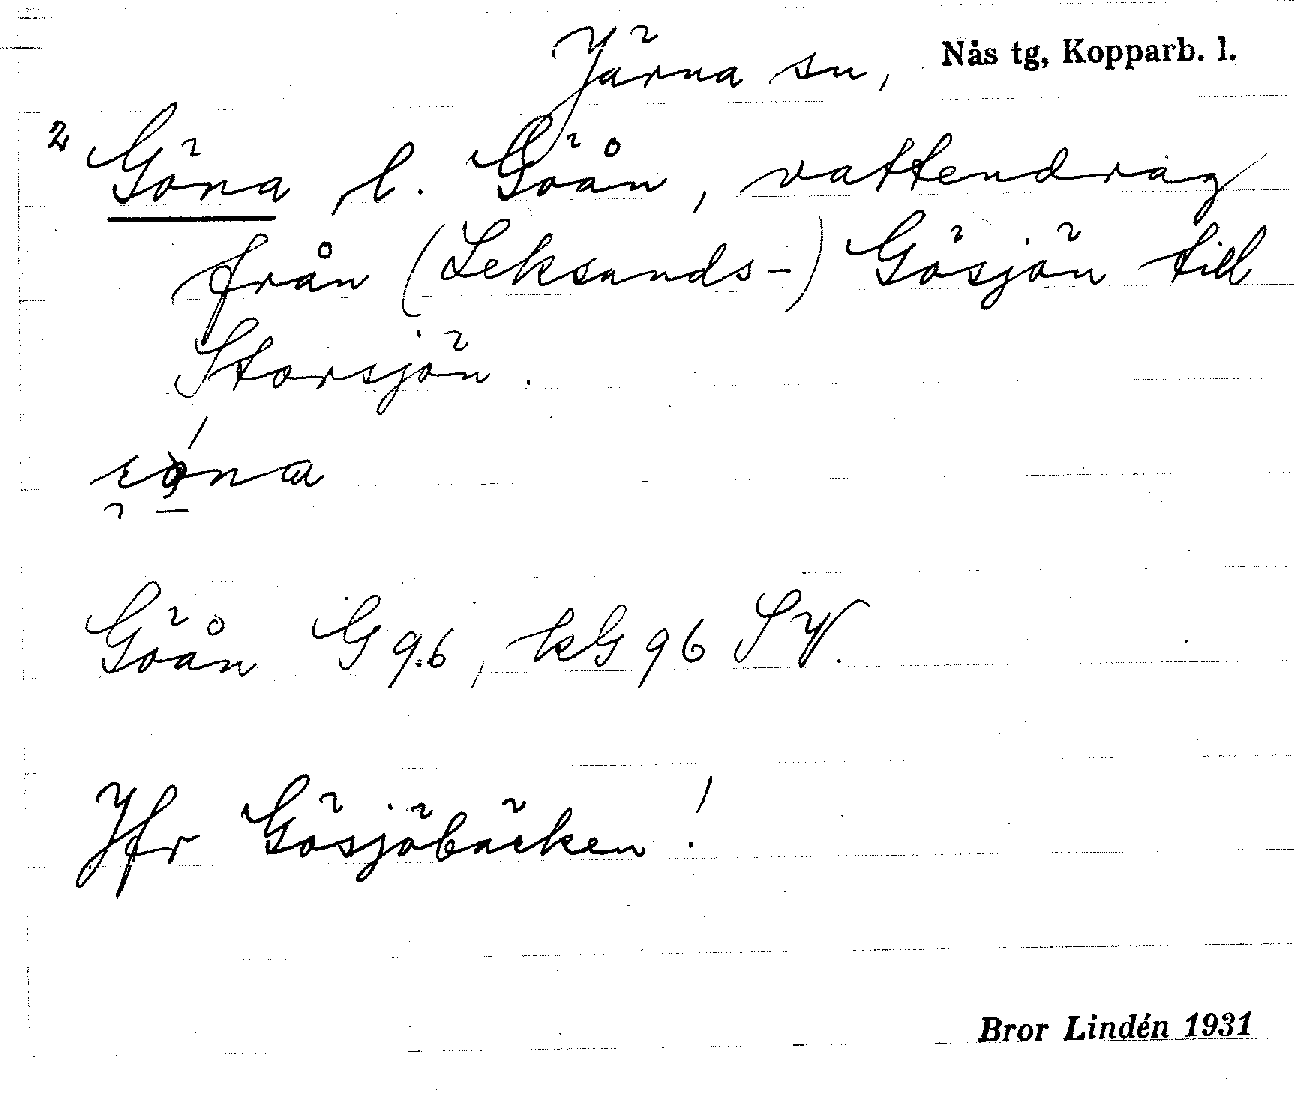 Järna sn, Nås tg, Kopparb. l.
2 Göna l. Göån, vattendrag
från (Leksands-) Gösjön till
Storsjön.
Göån G 96, kG 96 SV.
Jfr Gösjöbäcken!
Bror Lindén 1931